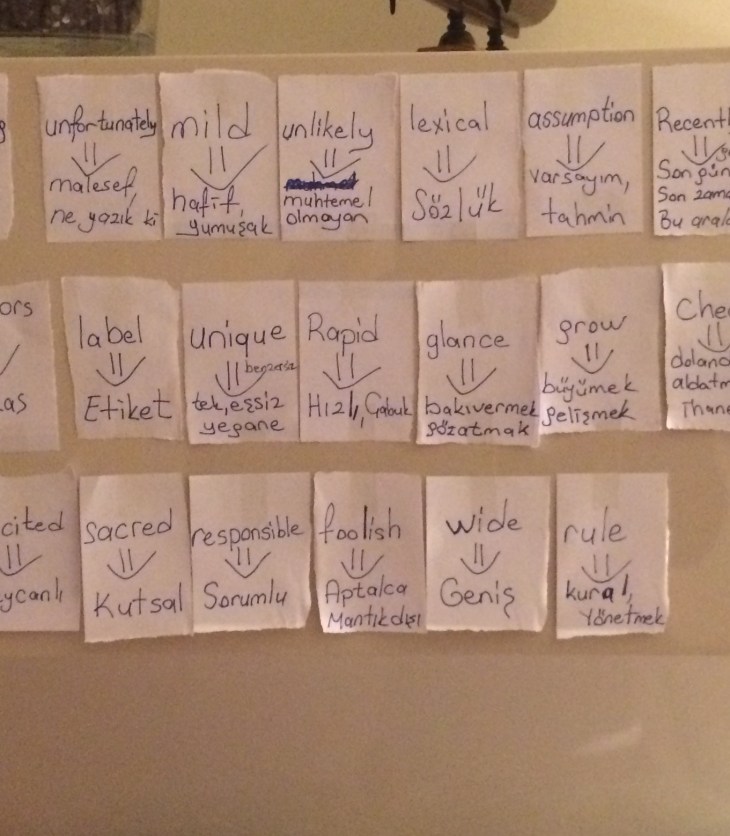 unfortunately
malesef,
ne yazık ki
mild
hafif,
yumuşak
unlikely
muhtemel
olmayan
lexical
Sözlük
assumption
varsayım,
tahmin
Recentl
Son gün
Son zama
Bu aral
ors
as
label
Etiket
unique
benzersiz
tek, eşsiz
yegane
Rapid
Hızlı, Çabuk
glance
bakıvermek
gözatmak
grow
büyümek
gelişmek
Chea
doland
aldatm
ihane
cited
ycanlı
sacred
Kutsal
responsible
Sorumlu
foolish
Aptalca
Mantıkdışı
wide
Geniş
rule
kural,
Yönetmek